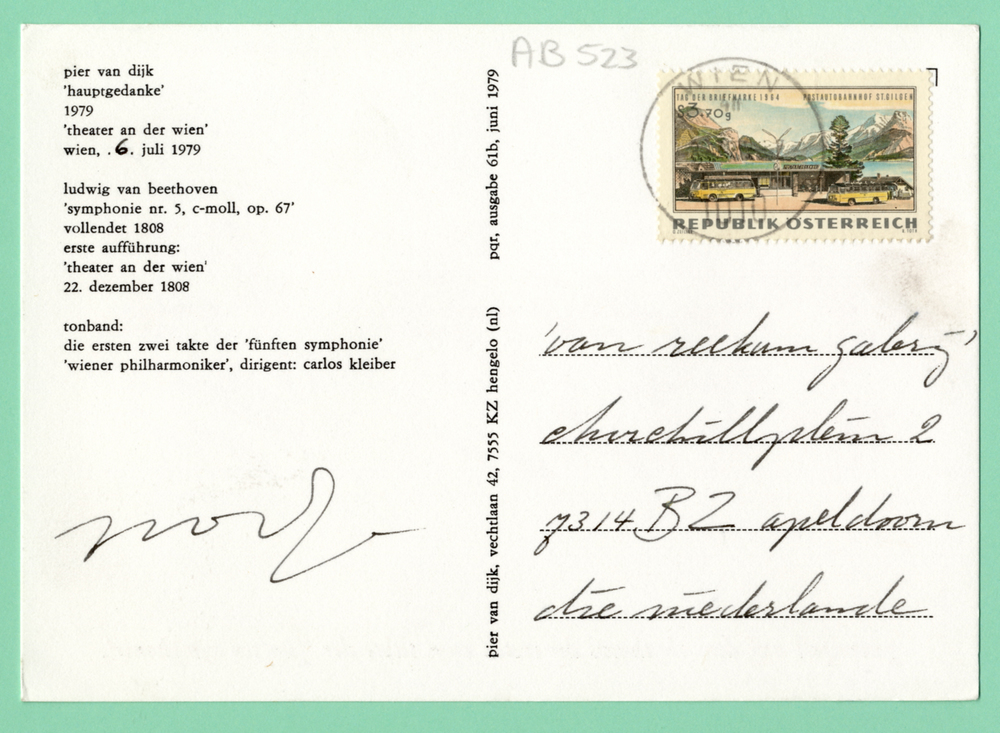 pier van dijk
'hauptgedanke'
1979
'theater an der wien'
wien, .6. juli 1979
ludwig van beethoven
'symphonie nr. 5, c-moll, op. 67'
vollendet 1808
erste aufführung:
'theater an der wien'
22. dezember 1808
tonband:
die ersten zwei takte der 'fünften symphonie'
'wiener philharmoniker', dirigent: carlos kleiber
pier van dijk, vechtlaan 42, 7555 KZ hengelo (nl)
pqr, ausgabe 61b, juni 1979
AB 523
WIEN
TAG DER BRIEFMARKE 1964 POSTAUTOBAHNHOF ST. GILGEN
S3.70g
REPUBLIK ÖSTERREICH
'van reekum galerij'
churchillplein 2
7314 BZ apeldoorn
die niederlande